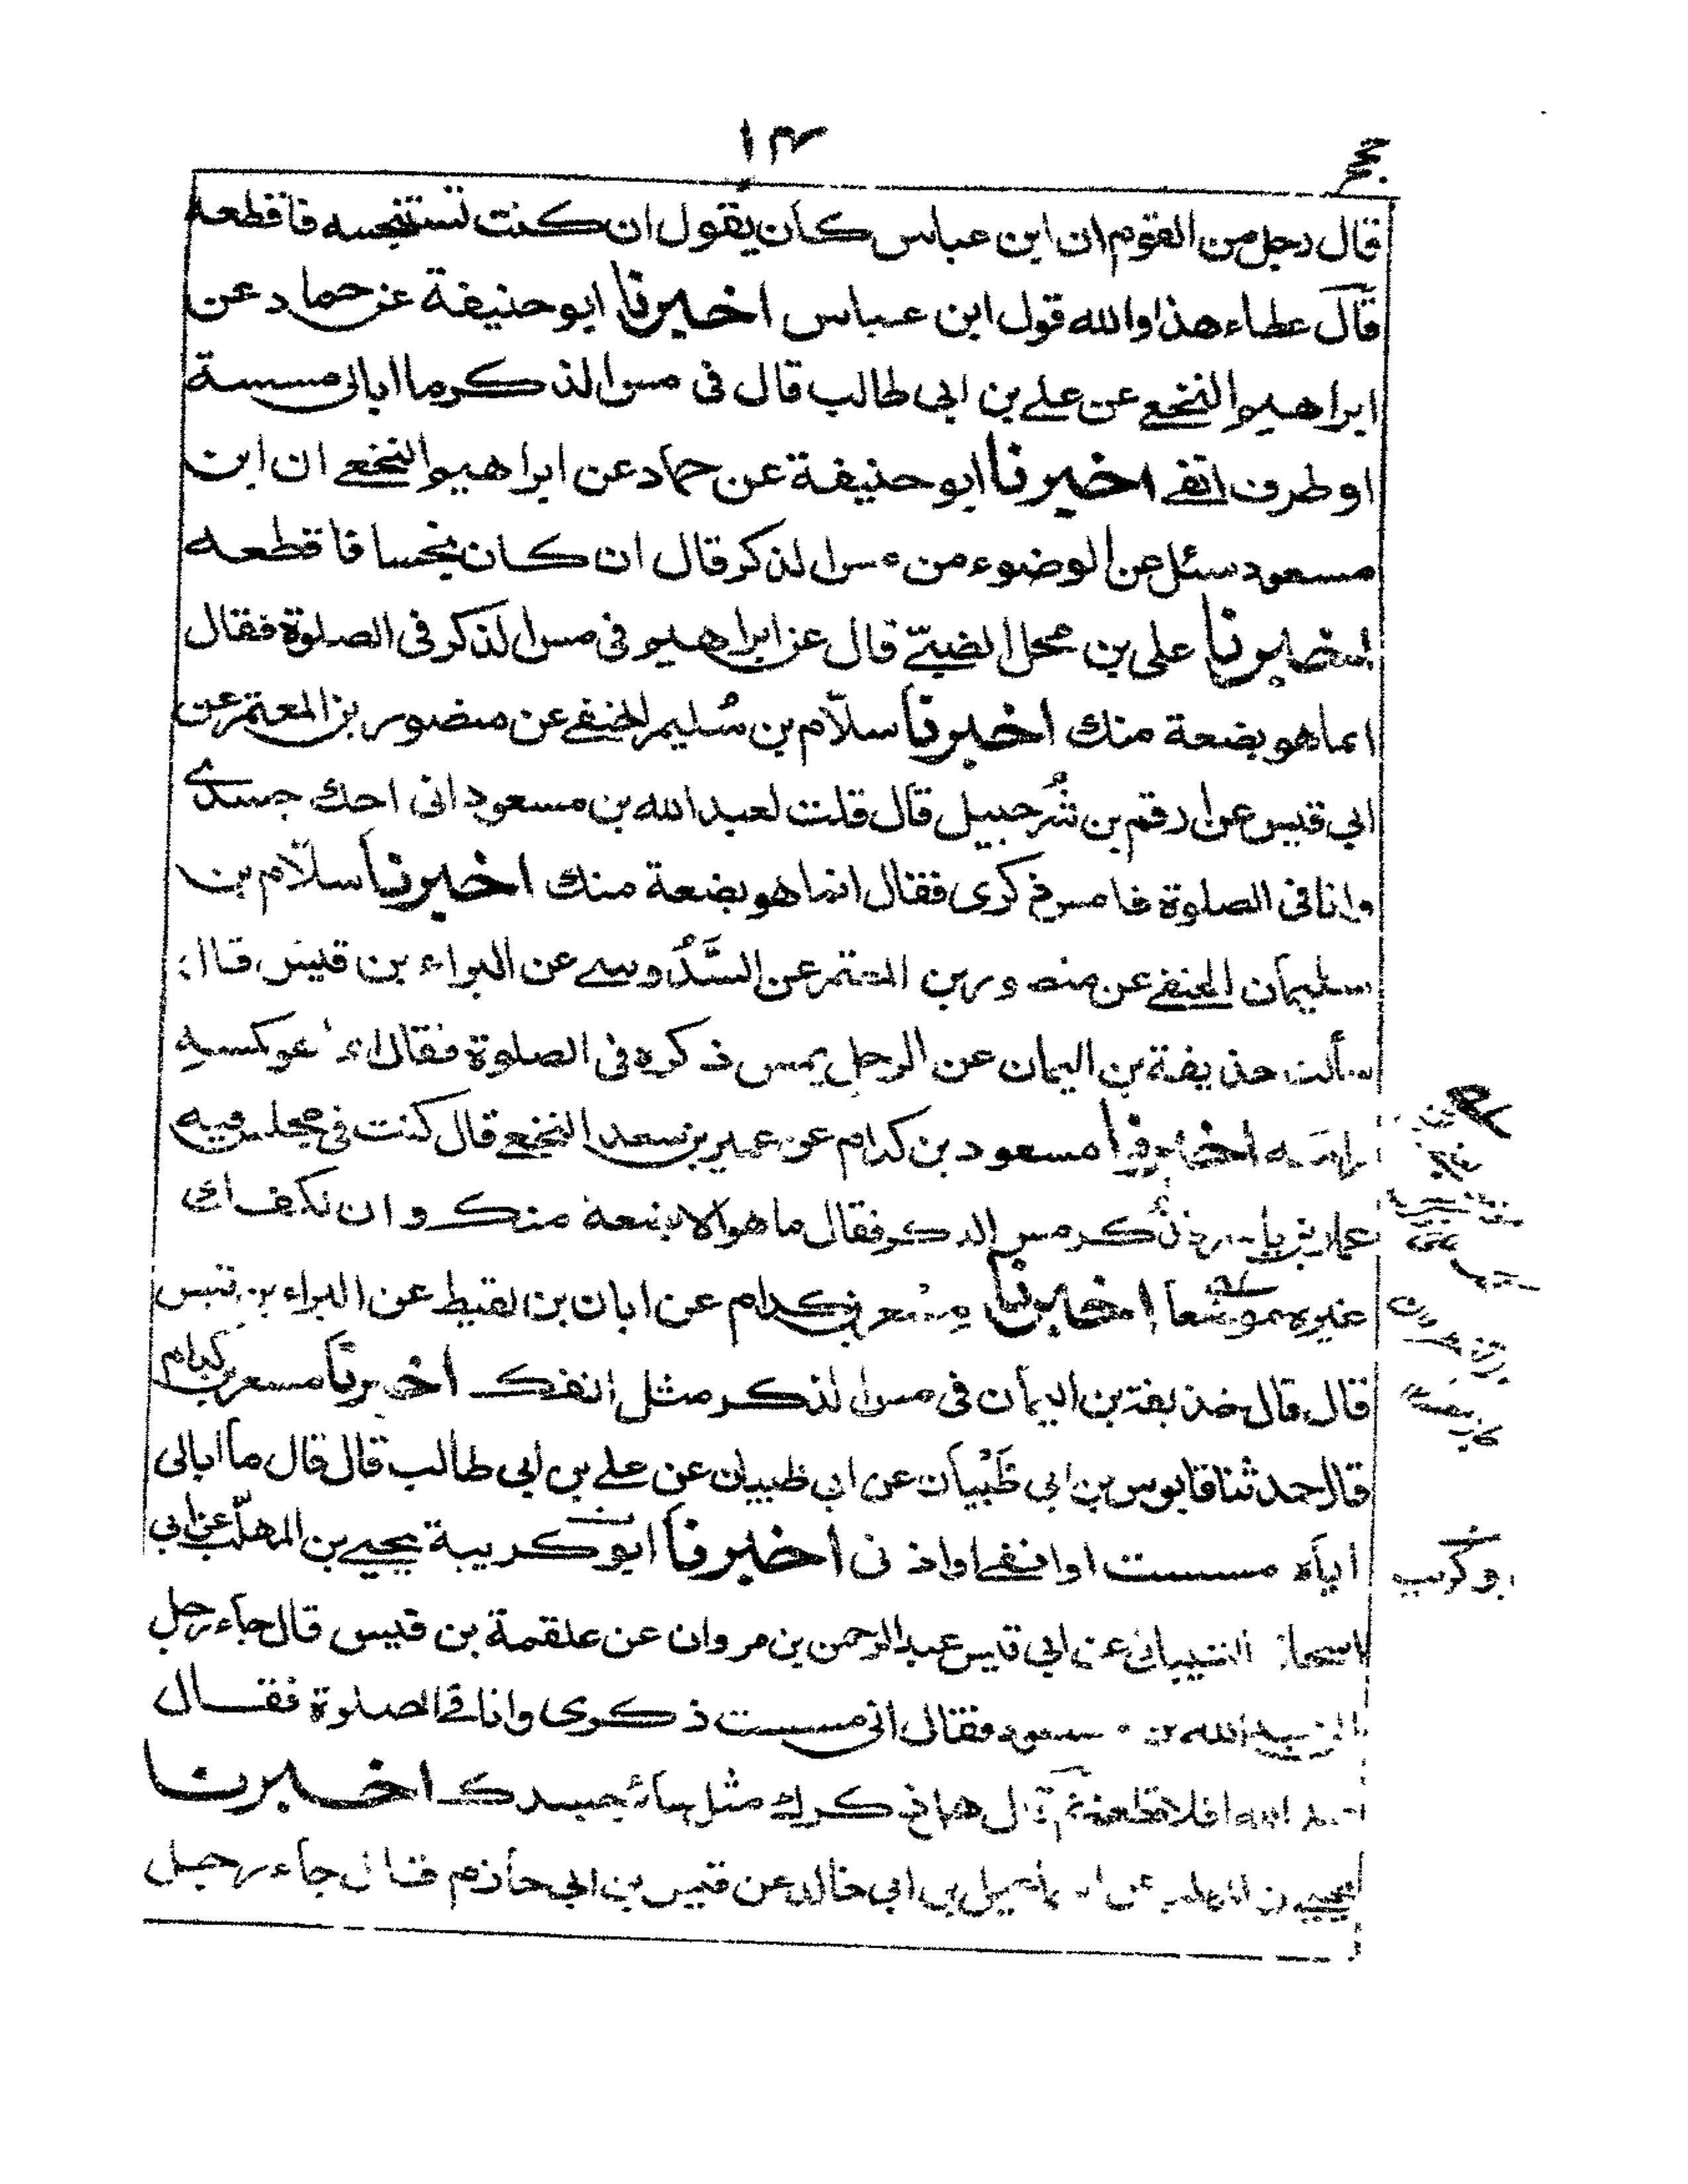 ١٣
قال رجل من القوم ان ابن عباس كان يقول ان كنت تستنجسه فاقطعه
قال عطاء هذا والله قول ابن عباس اخبرنا ابو حنيفة عن حماد عن
ابراهيم النخعي عن علي بن ابي طالب قال في مس الذكر ما ابالى مسسته
او طرف انفي اخبرنا ابو حنيفة عن حماد عن ابراهيم النخعي ان ابن
مسعود سئل عن الوضوء من مس الذكر قال ان كان نجسا فاقطعه
اخبرنا على بن محل الضبيّ قال عن ابراهيم فى مس الذكر فى الصلوة فقال
انما هو بضعة منك اخبرنا سلّام بن سُليم الحنفي عن منصور بن المعتمر عن
ابي قيس عن ارقم بن شُرحبيل قال قلت لعبد الله بن مسعود انى احك جسدى
وانا فى الصلوة فامس ذكرى فقال انما هو بضعة منك اخبرنا سلّام بن
سليمان الحنفي عن منصور بن المعتمر عن السَّدُوسي عن البراء بن قيس قال
سألت حذيفة بن اليمان عن الرجل يمس ذكره فى الصلوة فقال انما هو كمسه
راسه اخبرنا مسعود بن كدام عن عمير بن سعد النخعي قال كنت فى مجلس فيه
عمار بن ياسر فذُكر مس الذكر فقال ما هو الا بضعة منك وان لكفك
غيره موضعا اخبرنا مِسْعر بن كدام عن ابان بن لقيط عن البراء بن قيس
قال قال حذيفة بن اليمان فى مس الذكر مثل انفك اخبرنا مسعر بن كدام
قال حدثنا قابوس بن ابي ظَبْيان عن ابي ظبيان عن علي بن ابي طالب قال قال ما ابالى
اياه مسست او انفي او اذنى اخبرنا ابو كريبة يحيي بن المهلّب عن ابي
ابو كُريب
اسحاق الشيبانى عن ابي قيس عبد الرحمن بن مروان عن علقمة بن قيس قال جاء رجل
الى عبد الله بن مسعود فقال انى مسست ذكرى وانا فى الصلوة فقال
عبد الله افلا قطعته ثم قال هل ذكرك مثل سائر جسدك اخبرنا
يحيي بن المهلب عن اسماعيل بن ابي خالد عن قيس بن ابي حازم قال جاء رجل